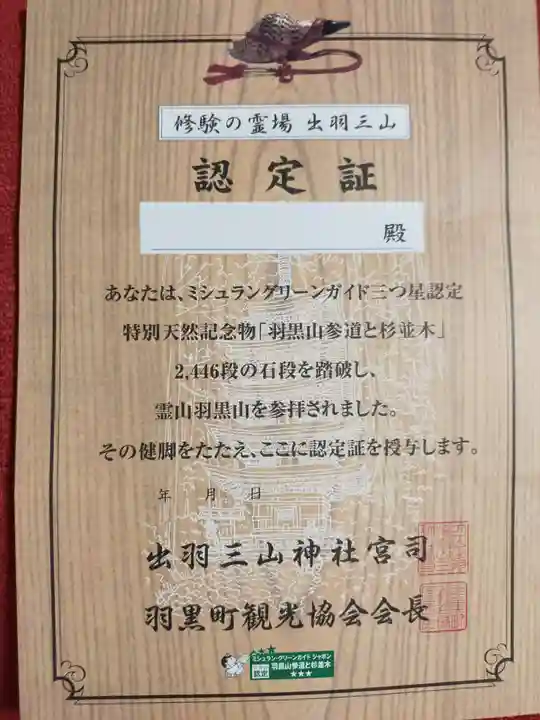 修験の霊場 出羽三山
認定証
殿
あなたは、ミシュラングリーンガイド三つ星認定
特別天然記念物「羽黒山参道と杉並木」
2,446段の石段を踏破し、
霊山羽黒山を参拝されました。
その健脚をたたえ、ここに認定証を授与します。
年 月 日
出羽三山神社宮司
羽黒町観光協会会長
ミシュラン・グリーンガイド ジャポン
羽黒山参道と杉並木
★★★